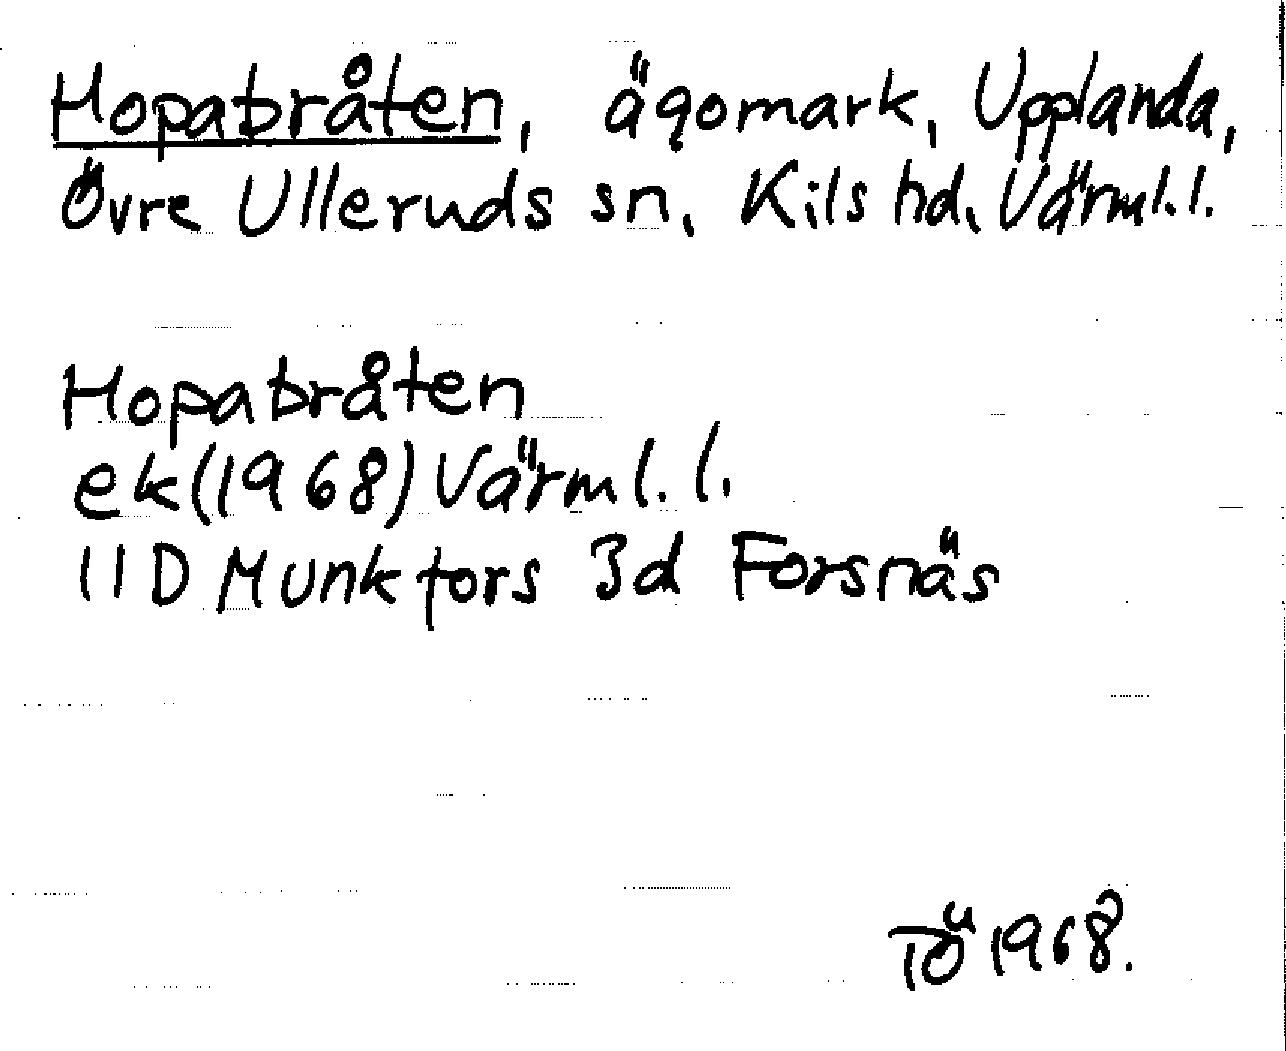 Hopabråten, ägomark, Upplanda,
Övre Ulleruds sn, Kils hd, Värml. l.
Hopabråten
ek (1968) Värml. l.
11D Munkfors 3d Forsnäs
TÖ 1968.